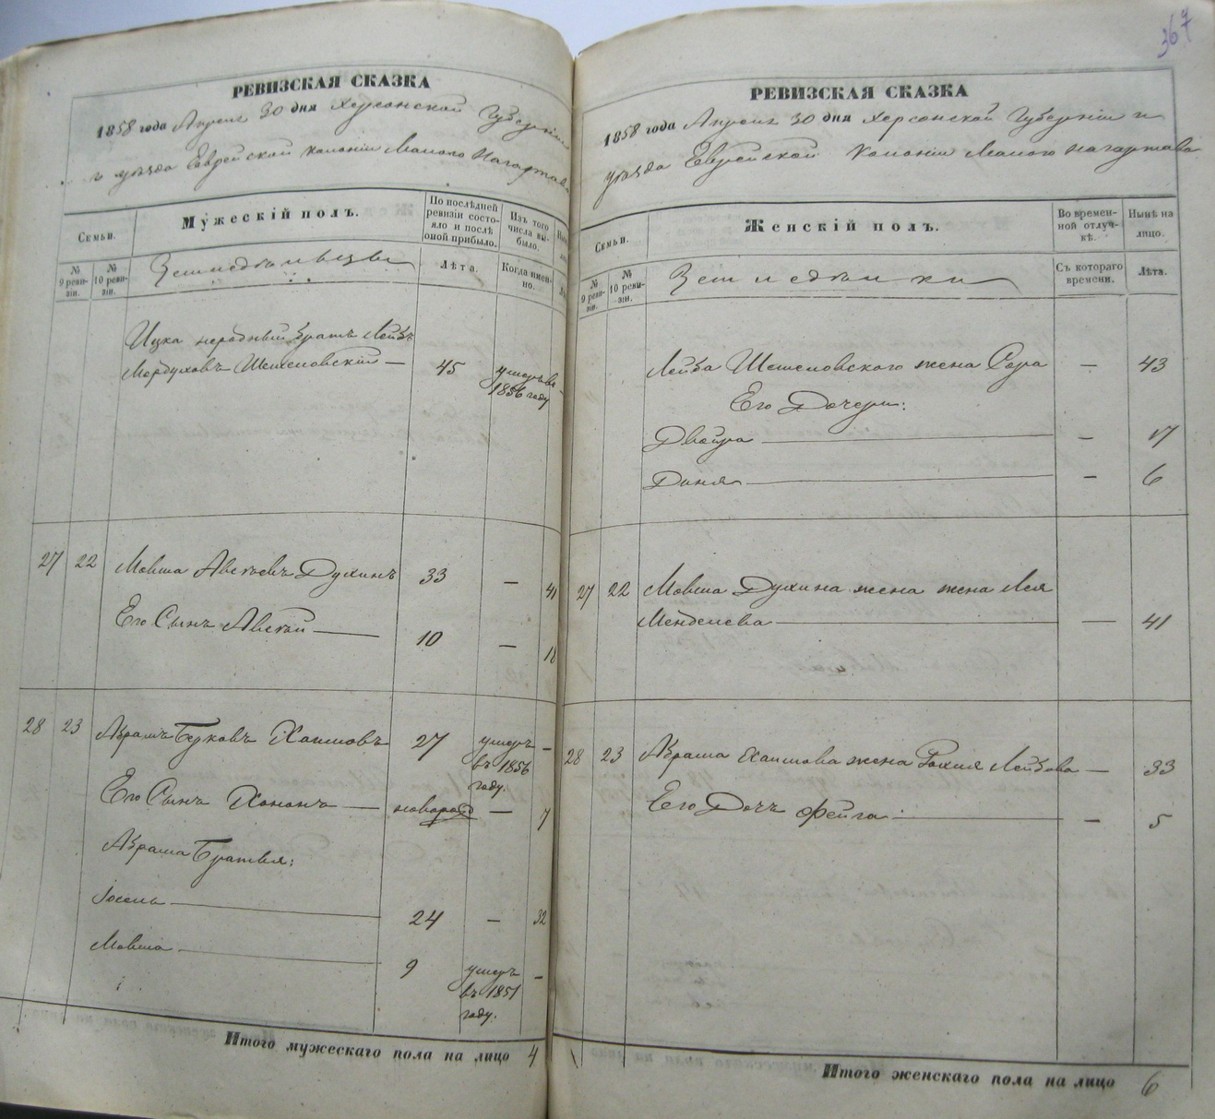 367
РЕВИЗСКАЯ СКАЗКА
1858 года Апреля 30 дня Херсонской Губерніи
и уѣзда Еврейской колоніи Малого Нагартава
Семьи.
Мужескій полъ.
По послѣдней ревизіи состояло и послѣ оной прибыло.
Изъ того числа выбыло.
№ 9 ревизіи.
№ 10 ревизіи.
Земледѣльцы
Лѣта.
Когда именно.
Ицка неродный братъ Лейба
Мордуховъ Шемеловскій — 45 умеръ въ 1856 году —
27 22 Мовша Авсѣевъ Духинъ 33 — 41
Его Сынъ Авсѣй — 10 — 18
28 23 Абрамъ Берковъ Хаимовъ 27 умеръ въ 1856 году. —
Его Сынъ Хононъ — новорожд — 7
Абрама Братья:
Іосель — 24 — 32
Мовша — 9 умеръ въ 1851 году. —
Итого мужескаго пола на лицо 4
РЕВИЗСКАЯ СКАЗКА
1858 года Апреля 30 дня Херсонской Губерніи и
уѣзда Еврейской колоніи Малого Нагартава
Семьи.
Женскій полъ.
Во временной отлучкѣ.
Нынѣ на лицо.
№ 9 ревизіи.
№ 10 ревизіи.
Земледѣлки
Съ котораго времени.
Лѣта.
Лейба Шемеловского жена Сора — 43
Его Дочери:
Двойра — — 17
Доня — — 6
27 22 Мовша Духина жена жена Лея
Менделева — — 41
28 23 Абрама Хаимова жена Рохля Лейбова — 33
Его Дочь Фейга — — 5
Итого женскаго пола на лицо 6